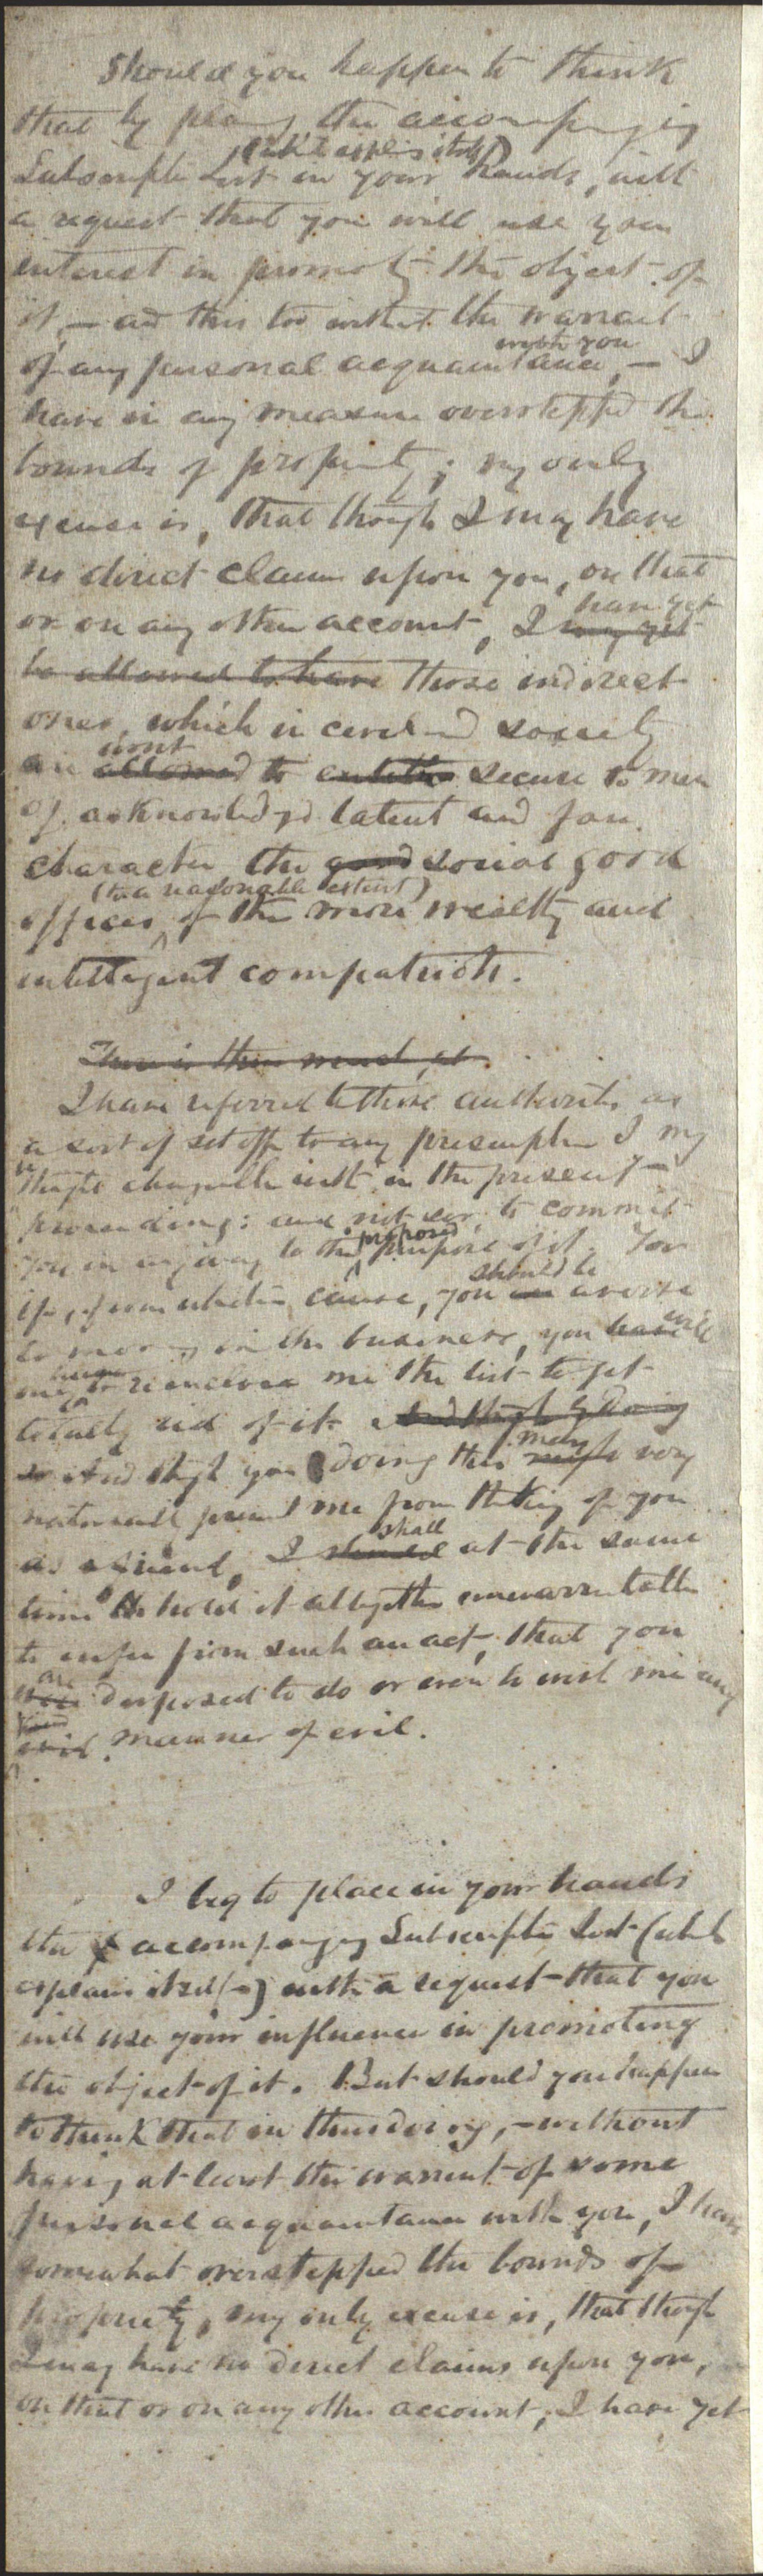 Should you happen to think
that by placing the accompanying
(which explains itself)
Subscriptn List in your hands, with
a request that you will use your
interest in promotg the object of
it, — and this too without the warrant
with you
of any personal acquaintance, — I
have in any measure overstepped the
bounds of propriety; my only
excuse is, that though I may have
no direct claim upon you, on that
have yet
or on any other account, I may yet
be allowed to have those indirect
ones, which in civilized society
wont
are allowed to entitle secure to men
of acknowledged talent and fair
character the good social good
(to a reasonable extent)
offices of the more wealthy and
intelligent compatriots.
There is then
I have referred to these authorities as
a sort of set off to any presumption I may
be thought chargeable with in the present
proceeding: and not to commit
proposed
you in any way to the purpose of it. For
should be
if, from whatever cause, you are averse
will
to moving in the business, you have
only to reinclose me the list to get
totally rid of it. And though by doing
may
so And though your doing this might very
naturally prevent me from thinking of you
shall
as a friend, I should at the same
time hold it altogether unwarrantable
to infer from such an act, that you
are
were disposed to do or even to wish me any
kind
evil manner of evil.
I beg to place in your hands
the accompanying Subscription List (which
explains itself) with a request that you
will use your influence in promoting
the object of it. But should you happen
to think that in thus doing, — without
having at least the warrant of some
personal acquaintance with you, I have
somewhat overstepped the bounds of
propriety, my only excuse is, that though
I may have no direct claims upon you,
on that or on any other account, I have yet